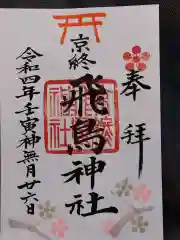 奉拝
京終
飛鳥神社
令和四年壬寅神無月廿六日